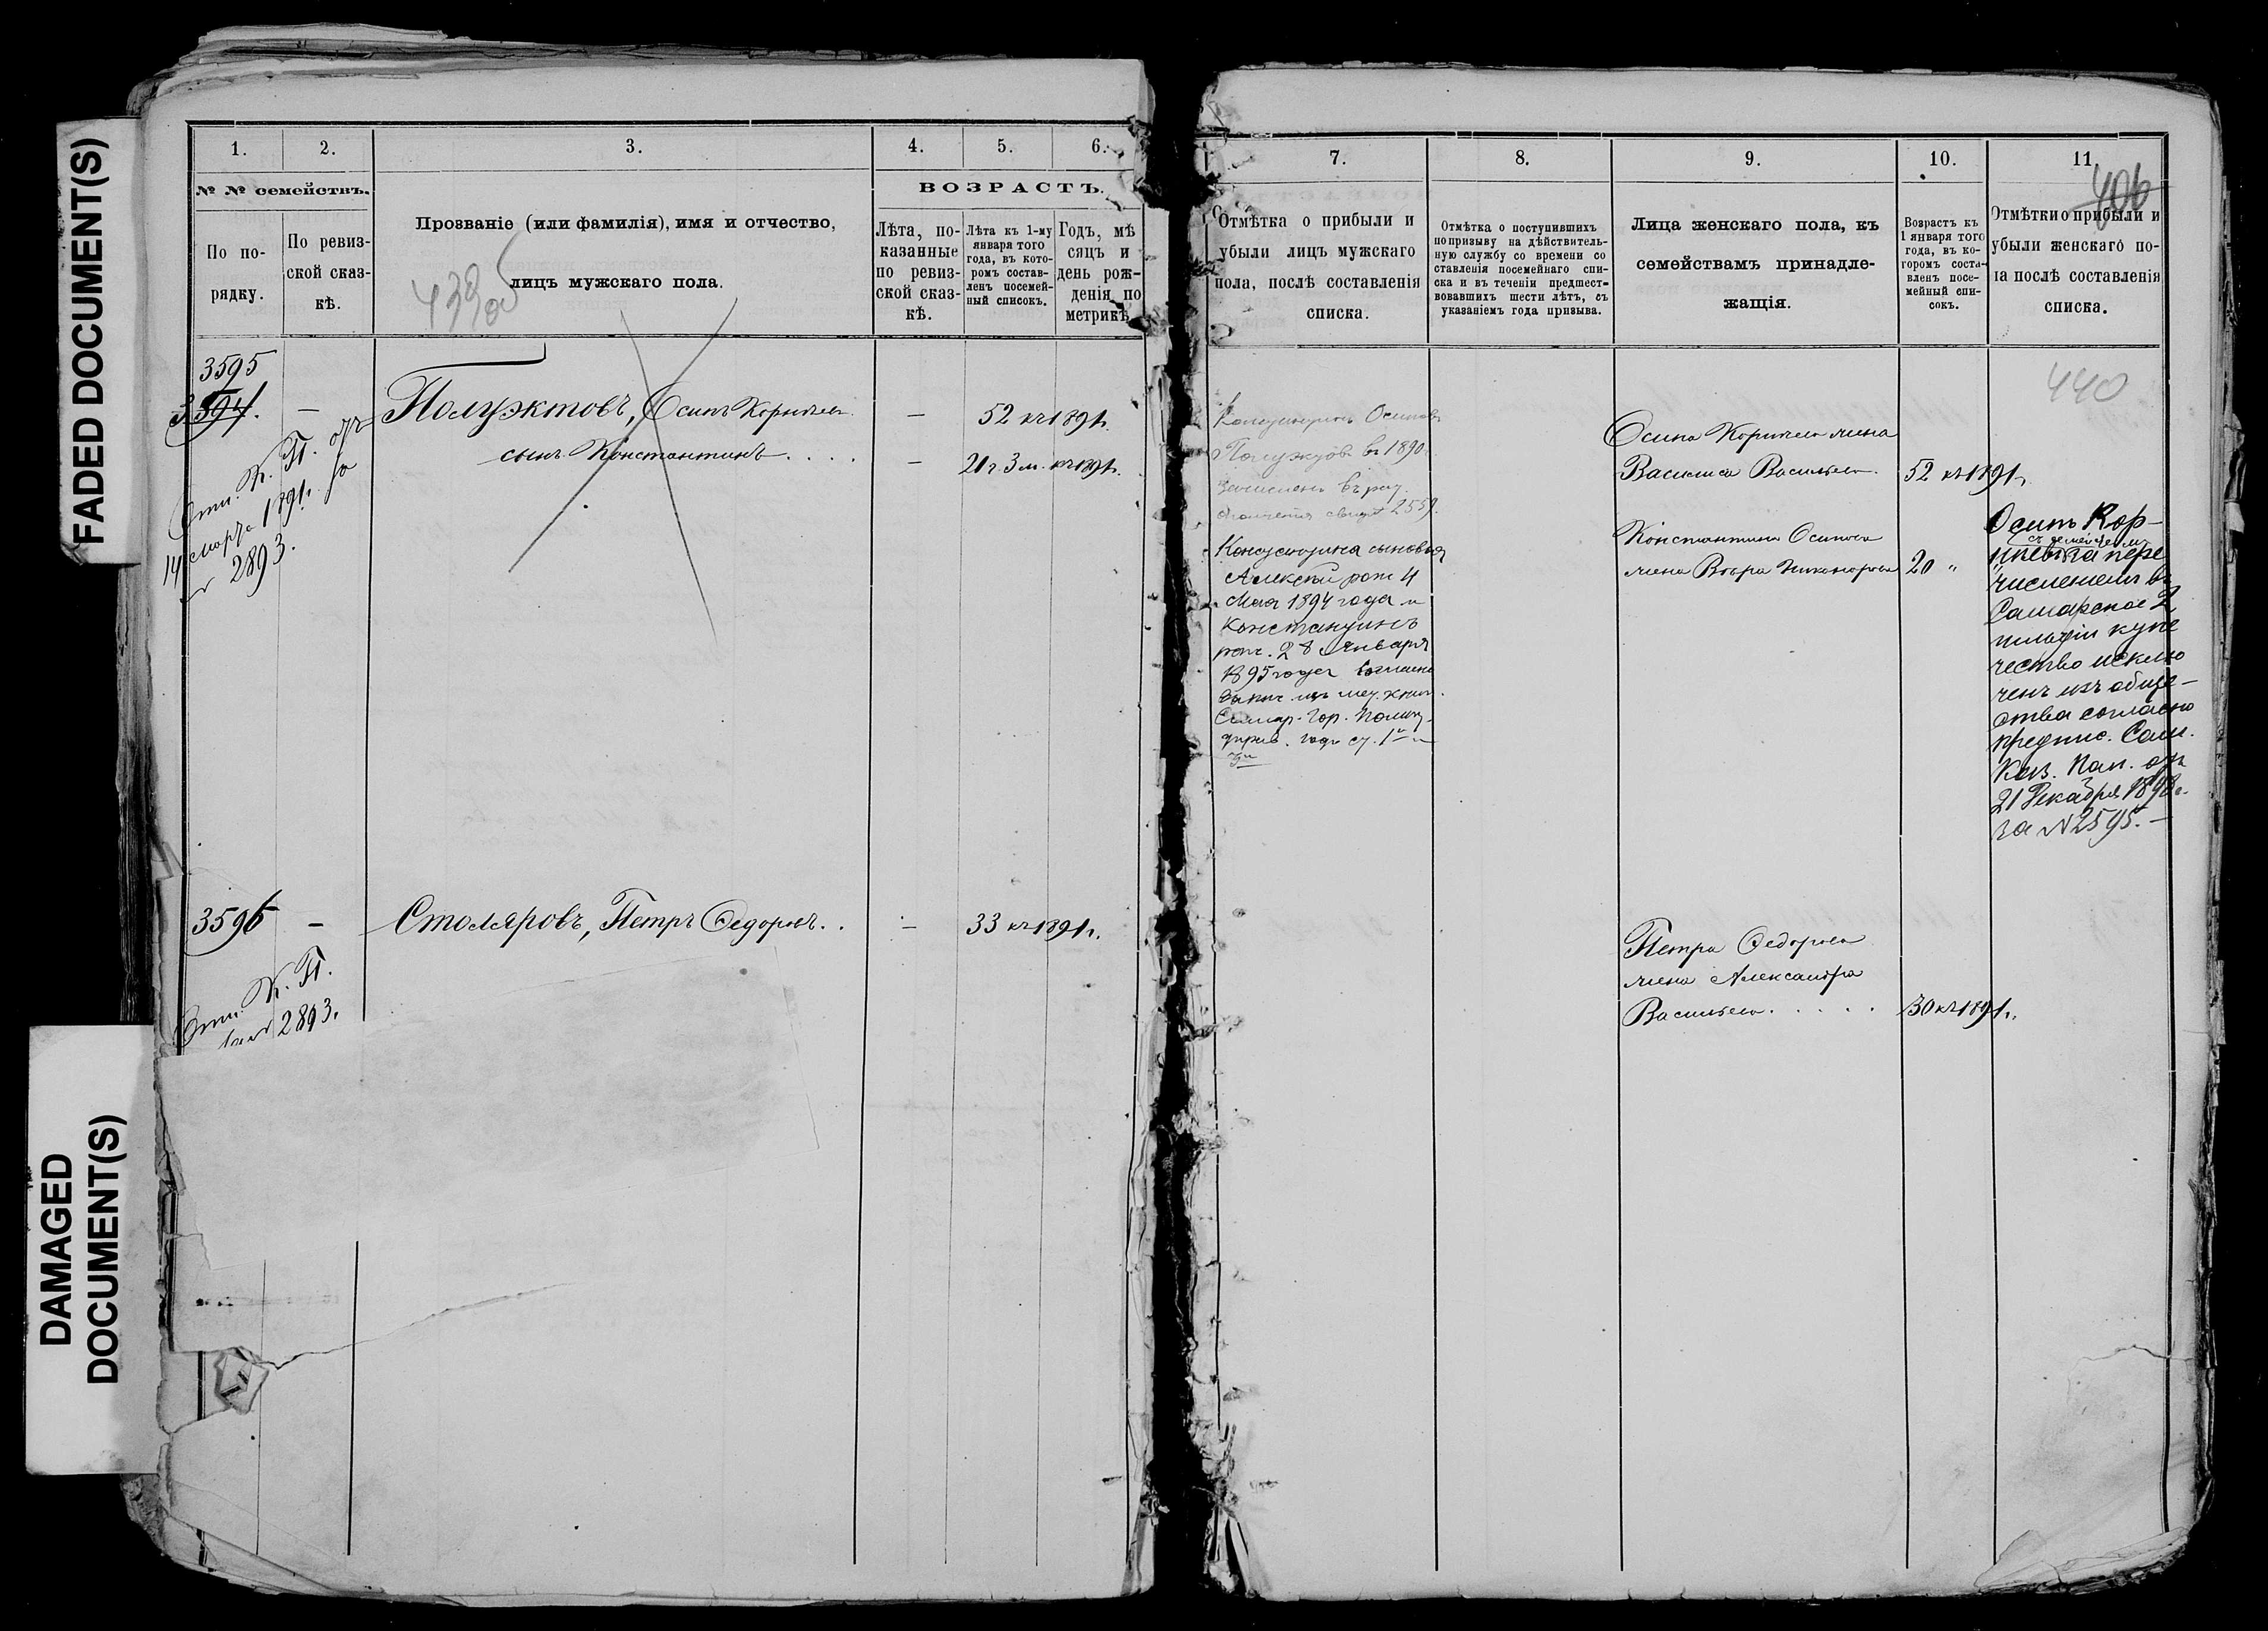 FADED DOCUMENT(S)
DAMAGED
DOCUMENT(S)
1.
2.
3.
4.
5.
6.
№ № семействъ.
По по-
рядку.
По ревиз-
ской сказ-
кѣ.
Прозваніе (или фамилія), имя и отчество,
лицъ мужскаго пола.
ВОЗРАСТЪ.
Лѣта, по-
казанные
по ревиз-
ской сказ-
кѣ.
Лѣта къ 1-му
января того
года, въ кото-
ромъ состав-
ленъ посемей-
ный списокъ.
Годъ, мѣ
сяцъ и
день рож-
денія по
метрикѣ
438 об
3595
3594. —
Полуэктовъ, Осипъ Корнѣев — 52 къ 1891 г.
сынъ Константинъ . . . . — 21 г. 3 м. къ 1891 г.
Отн. К. П. отъ
14 марта 1891 г. за
№ 2893.
3596 — Столяровъ, Петръ Федоровъ . . — 33 къ 1891 г.
Отн. К. П.
за № 2893.
7.
8.
9.
10.
11.
406
Отмѣтка о прибыли и
убыли лицъ мужскаго
пола, послѣ составленія
списка.
Отмѣтка о поступившихъ
по призыву на дѣйствитель-
ную службу со времени со
ставленія посемейнаго спи-
ска и въ теченіи предшест-
вовавшихъ шести лѣтъ, съ
указаніемъ года призыва.
Лица женскаго пола, къ
семействамъ принадле-
жащія.
Возрастъ къ
1 января того
года, въ ко-
горомъ соста-
вленъ посе-
мейный спи-
сокъ.
Отмѣтки о прибыли и
убыли женскаго по-
ла послѣ составленія
списка.
440
Константинъ Осиповъ
Полуэктов въ 1890
зачисленъ въ рат.
ополченія свидѣт 2559.
Константина сыновья
Алексѣй рож 4
Мая 1894 года и
Константинъ
рож. 28 Января
1895 года
Самар. Гор. Полиц.
Осипа Корнѣева жена
Василиса Васильева. 52 къ 1891 г.
Константина Осипова
жена Вѣра Никонорова 20 "
Осипъ Кор-
нѣевъ за пере
съ семействомъ
численіемъ въ
Самарское 2
гильдіи купе
чество исклю
ченъ изъ обще-
ства согласно
предпис. Сам.
Каз. Пал. отъ
21 Декабря 1898 г.
за № 2595. —
Петра Федорова
жена Александра
Васильева . . . . . 30 къ 1891 г.